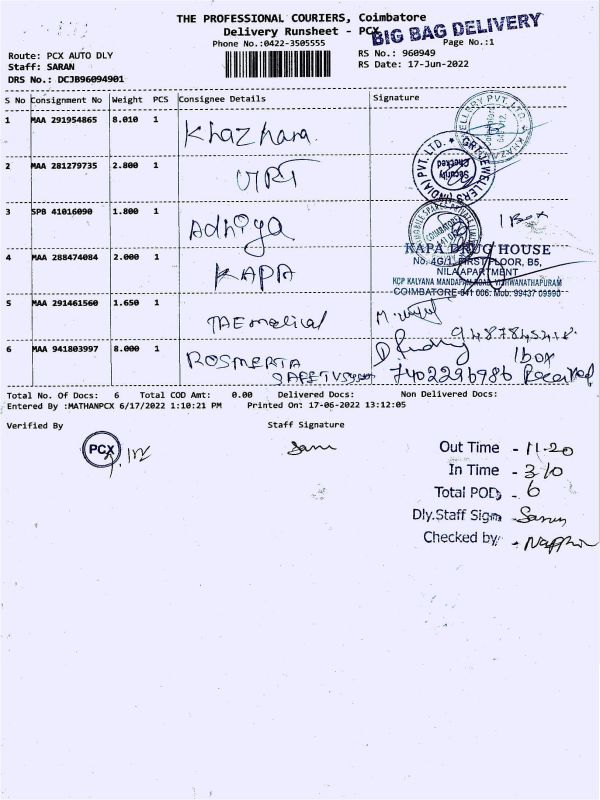 THE PROFESSIONAL COURIERS, Coimbatore
Delivery Runsheet - PCX
BIG BAG DELIVERY
Phone No.:0422-3505555
Page No.:1
Route: PCX AUTO DLY
RS No.: 960949
Staff: SARAN
RS Date: 17-Jun-2022
DRS No.: DCJB96094901
S No Consignment No Weight PCS Consignee Details Signature
1 MAA 291954865 8.010 1 Khazhana
2 MAA 281279735 2.800 1
3 SPB 41016090 1.800 1 Adhiya
1 Box
4 MAA 288474084 2.000 1 KAPA
KAPA DRUG HOUSE
No. 4G/1, FIRST FLOOR, B5,
NILA APARTMENT
KCP KALYANA MANDAPAM ROAD, VISHWANATHAPURAM
COIMBATORE-641 006. Mob: 99437 09590
5 MAA 291461560 1.650 1 TAE medical
9487845218
6 MAA 941803997 8.000 1 ROSMERTA
SAFETY System
1 box
7402296986 Received
Total No. Of Docs: 6 Total COD Amt: 0.00 Delivered Docs: Non Delivered Docs:
Entered By :MATHANPCX 6/17/2022 1:10:21 PM Printed On: 17-06-2022 13:12:05
Verified By Staff Signature
PCX
Saran
Out Time - 11.20
In Time - 3/10
Total PODs - 6
Dly.Staff Sign - Saran
Checked by: -